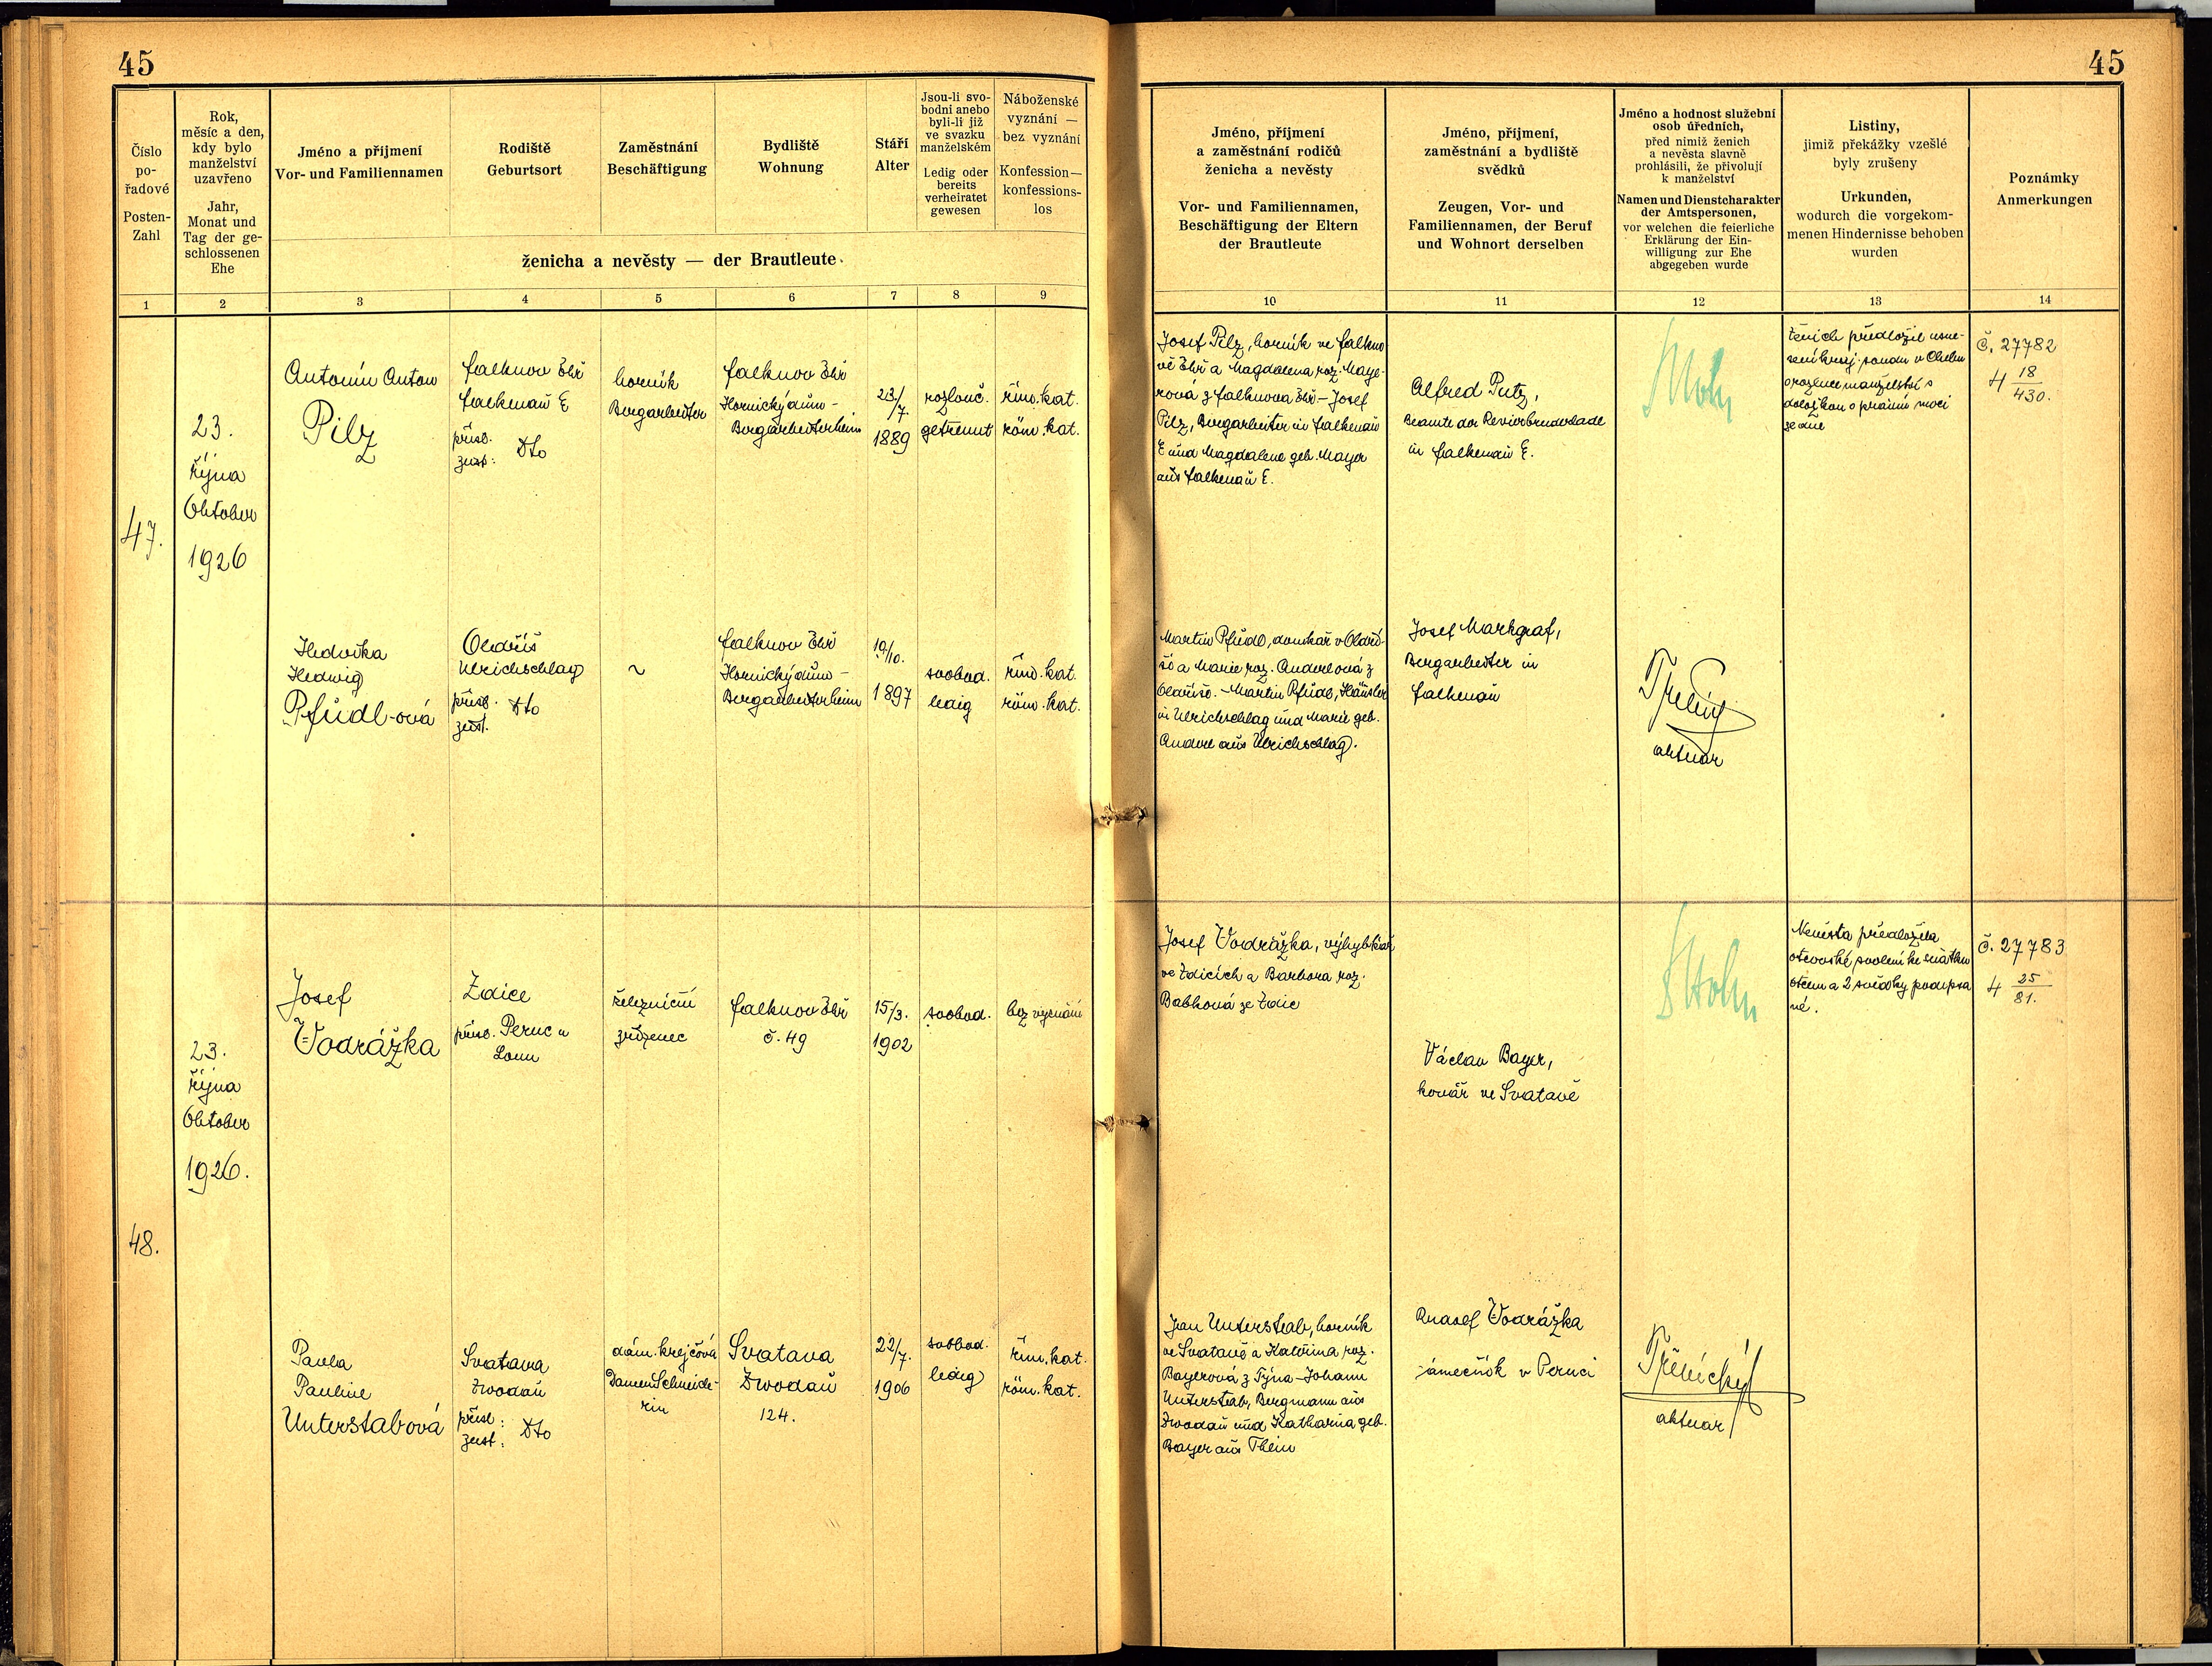 45
45
Číslo
po-
řadové
Posten-
Zahl
Rok,
měsíc a den,
kdy bylo
manželství
uzavřeno
Jahr,
Monat und
Tag der ge-
schlossenen
Ehe
Jméno a příjmení
Vor- und Familiennamen
Rodiště
Geburtsort
Zaměstnání
Beschäftigung
Bydliště
Wohnung
Stáří
Alter
Jsou-li svo-
bodni anebo
byli-li již
ve svazku
manželském
Ledig oder
bereits
verheiratet
gewesen
Náboženské
vyznání —
bez vyznání
Konfession—
konfessions-
los
ženicha a nevěsty — der Brautleute
Jméno, příjmení
a zaměstnání rodičů
ženicha a nevěsty
Vor- und Familiennamen,
Beschäftigung der Eltern
der Brautleute
Jméno, příjmení,
zaměstnání a bydliště
svědků
Zeugen, Vor- und
Familiennamen, der Beruf
und Wohnort derselben
Jméno a hodnost služební
osob úředních,
před nimiž ženich
a nevěsta slavně
prohlásili, že přivolují
k manželství
Namen und Dienstcharakter
der Amtspersonen,
vor welchen die feierliche
Erklärung der Ein-
willigung zur Ehe
abgegeben wurde
Listiny,
jimiž překážky vzešlé
byly zrušeny
Urkunden,
wodurch die vorgekom-
menen Hindernisse behoben
wurden
Poznámky
Anmerkungen
1 2 3 4 5 6 7 8 9 10 11 12 13 14
47.
23.
Října
Oktober
1926
Antonín Anton
Pilz
Falknov Ohř
Falkenau E
přísl.
zust: Dto
horník
Bergarbeiter
Falknov Ohř
Hornický dům -
Bergarbeiterheim
23/7.
1889
rozlouč.
getrennt
řím. kat.
röm. kat.
Josef Pilz, horník ve Falkno
vě Ohř a Magdalena roz. Maye-
rová z Falknova Ohř - Josef
Pilz, Bergarbeiter in Falkenau
E und Magdalene geb. Mayer
aus Falkenau E.
Alfred Putz,
Beamte der Revierbruderlade
in Falkenau E.
Ženich předložil usne-
sení kraj. soudu v Chebu
o rozluce manželství s
doložkou o právní moci
ze dne
č. 27782
4 18/430.
Hedvika
Hedwig
Pfüdl-ová
Oldřiš
Ulrichschlag
přísl. Dto
zust.
~
Falknov Ohř
Hornický dům -
Bergarbeiterheim
19/10.
1897
svobod.
ledig
řím. kat.
röm. kat.
Martin Pfüdl, domkář v Oldři-
ši a Marie roz. Anderlová z
Oldřiše. - Martin Pfüdl, Häusler
in Ulrichschlag und Marie geb.
Anderl aus Ulrichschlag.
Josef Markgraf,
Bergarbeiter in
Falkenau
aktuar
48.
23.
Října
Oktober
1926.
Josef
Vodrážka
Zdice
přísl. Peruc u
Loun
železniční
zřízenec
Falknov Ohř
č. 49
15/3.
1902
svobod.
bez vyznání
Josef Vodrážka, výhybkář
ve Zdicích a Barbora roz.
Babková ze Zdic
Václav Bayer,
kovář ve Svatavě
Nevěsta předložila
otcovské svolení ke sňatku
otcem a 2 svědky podepsa
né.
č. 27783
4 25/81.
Pavla
Pauline
Unterstabová
Svatava
Zwodau
přísl:
zust: Dto
dám. krejčová
Damen Schneide-
rin
Svatava
Zwodau
124.
22/7.
1906
svobod.
ledig
řím. kat.
röm. kat.
Jan Unterstab, horník
ve Svatavě a Kateřina roz.
Bayerová z Týna - Johann
Unterstab, Bergmann aus
Zwodau und Katharina geb.
Bayer aus Thein
Rudolf Vodrážka
zámečník v Peruci
aktuar